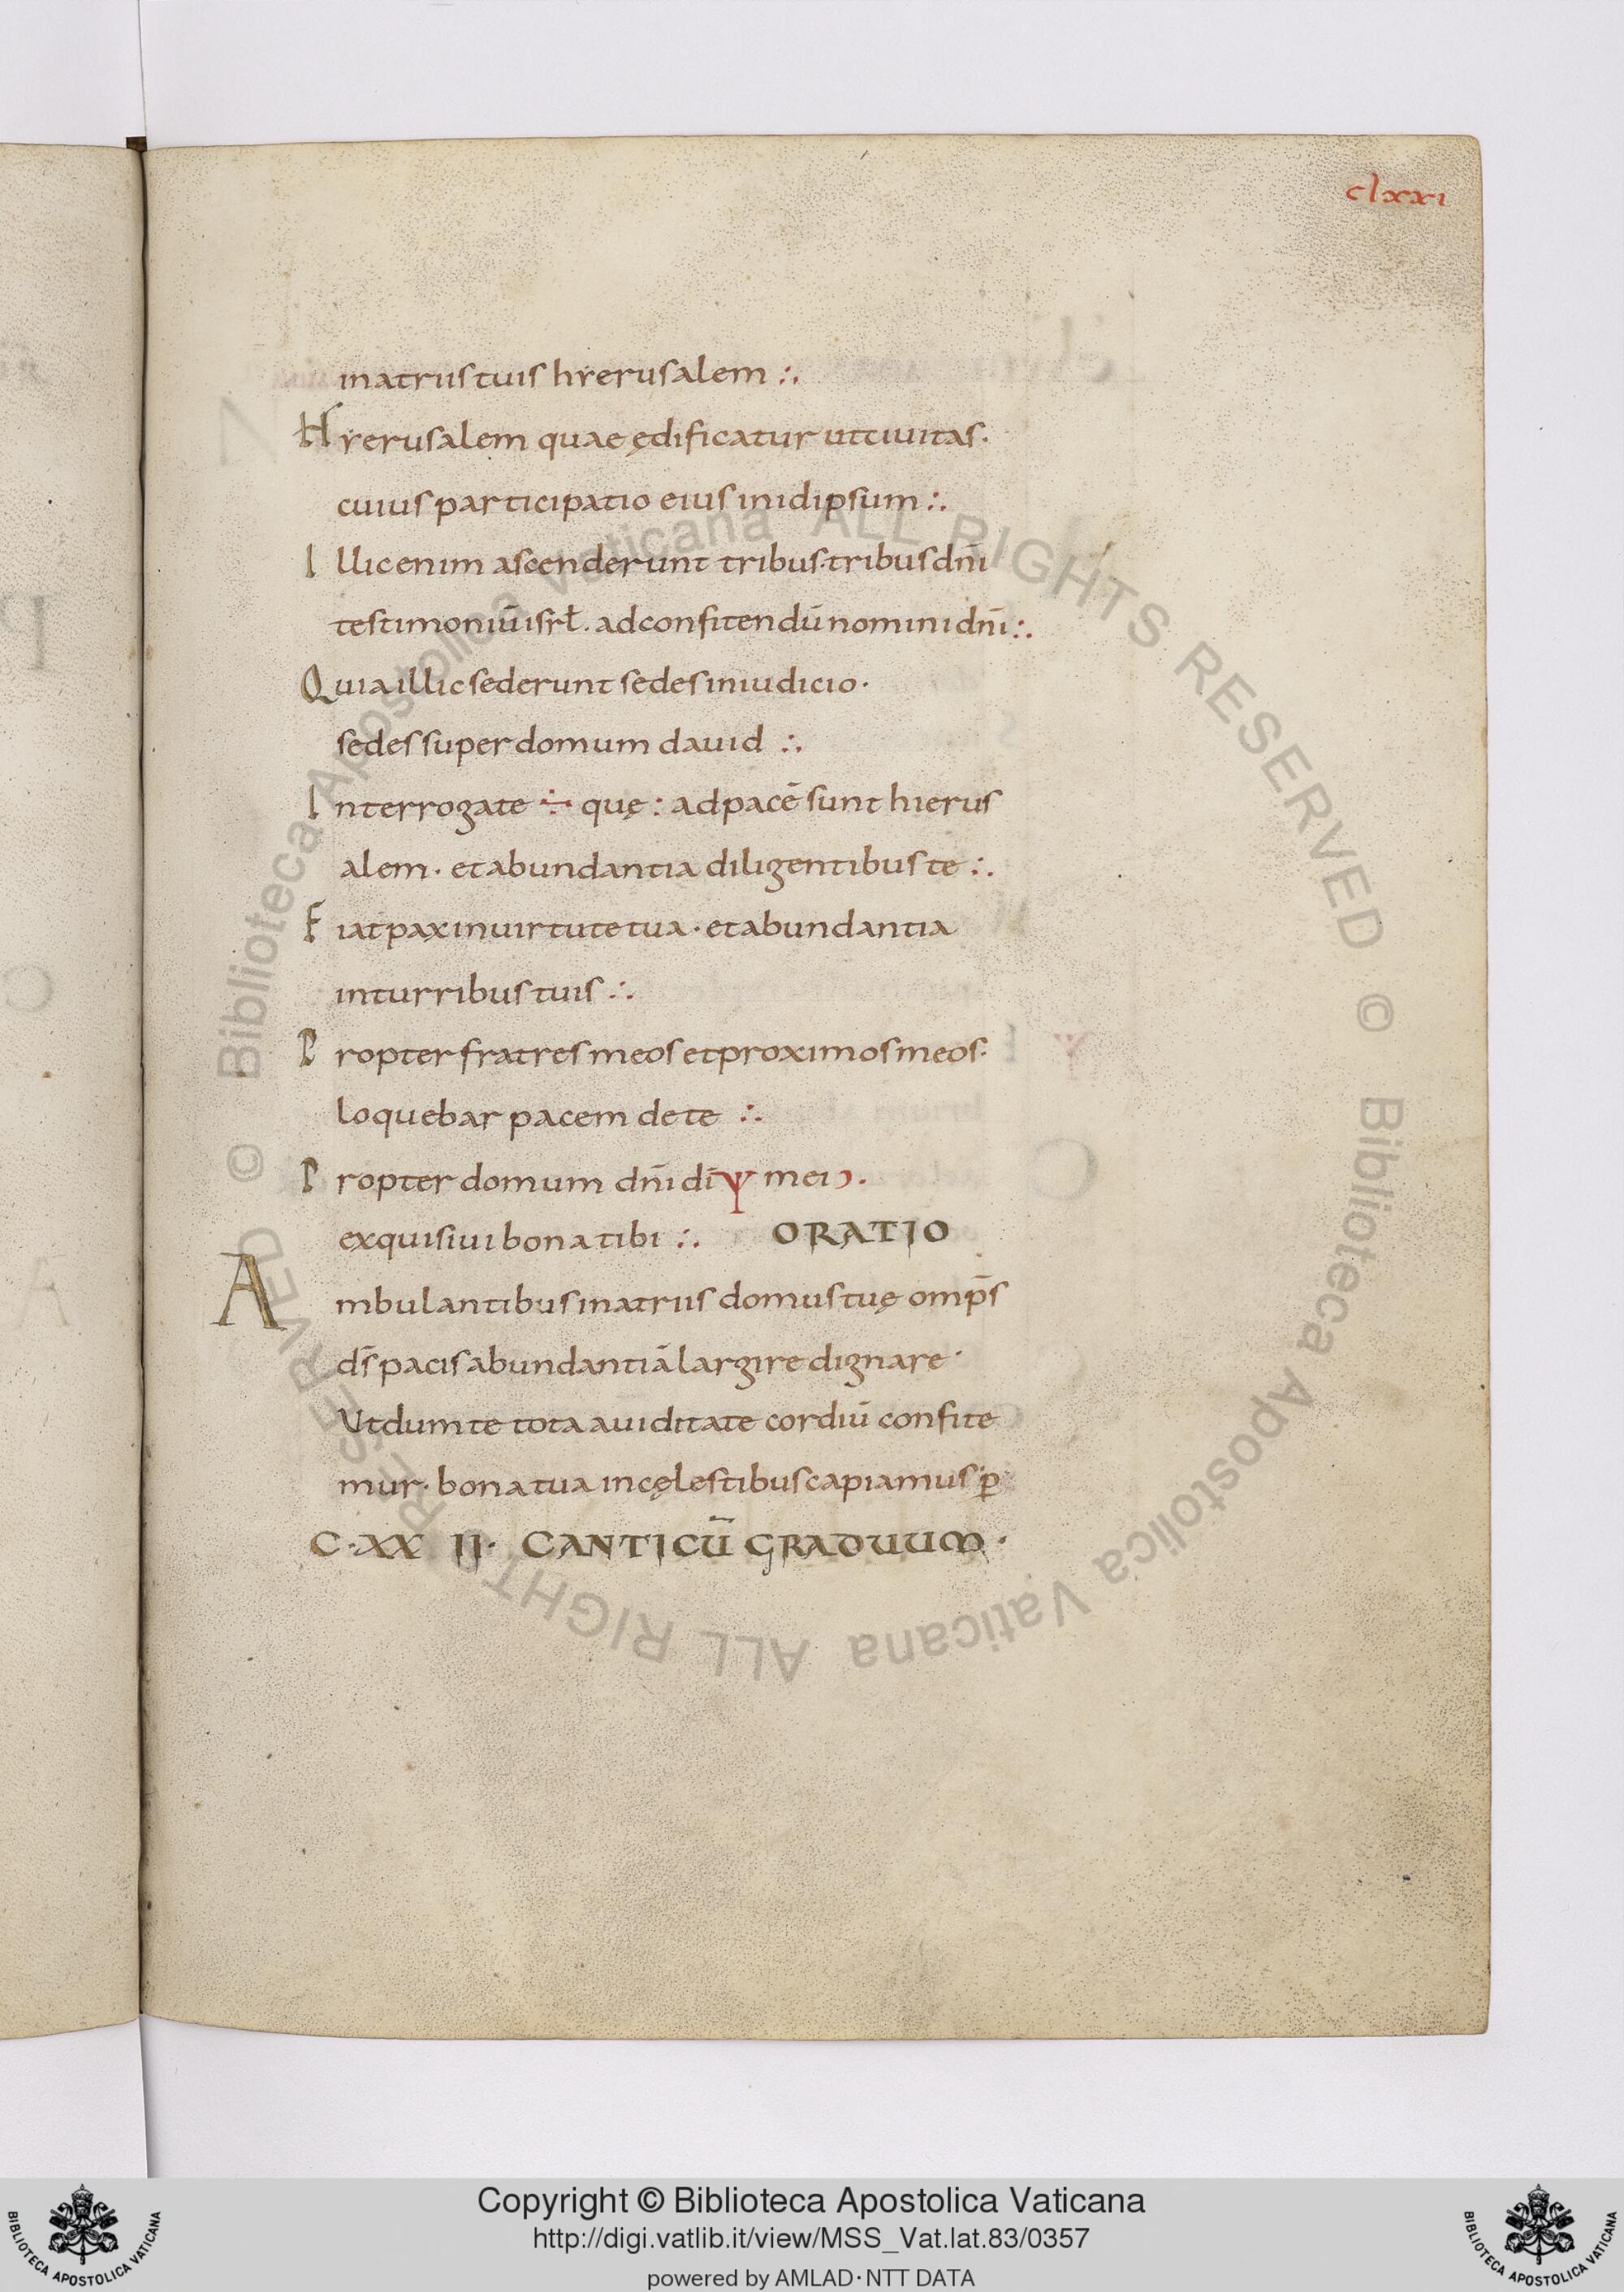 clxxi
inatriis tuis hyerusalem :.
Hyerusalem quae ędificatur ut ciuitas.
cuius participatio eius inidipsum :.
Illic enim ascenderunt tribus. tribus dn̄i
testimoniū isrł. adconfitendū nomini dn̄i :.
Quia illic sederunt sedes iniudicio.
sedes super domum dauid :.
Interrogate ÷ quę : adpacē sunt hierus
alem. et abundantia diligentibus te :.
Fiat pax inuirtute tua. et abundantia
inturribus tuis :.
Propter fratres meos et proximos meos.
loquebar pacem de te :.
Propter domum dn̄i dī ψ mei ).
exquisiui bona tibi :. ORATIO
Ambulantibus inatriis domus tuę omp̄s
ds̄ pacis abundantiā largire dignare.
Ut dum te tota auiditate cordiū confite
mur. bona tua incęlestibus capiamus. p̄
C.XX II. CANTICŪ GRADUUM.
© Biblioteca Apostolica Vaticana ALL RIGHTS RESERVED
© Biblioteca Apostolica Vaticana ALL RIGHTS RESERVED
Copyright © Biblioteca Apostolica Vaticana
http://digi.vatlib.it/view/MSS_Vat.lat.83/0357
powered by AMLAD·NTT DATA
BIBLIOTECA APOSTOLICA VATICANA
BIBLIOTECA APOSTOLICA VATICANA